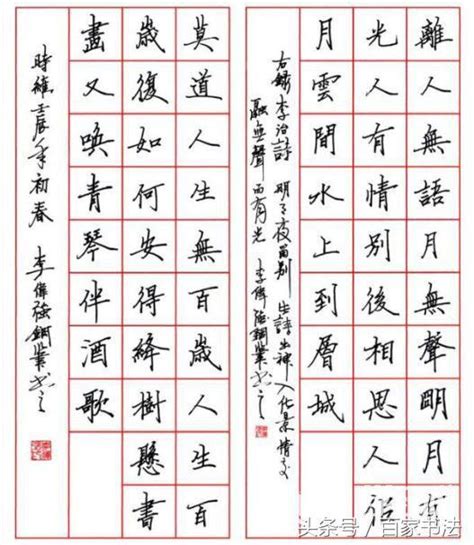 離人無語月無聲明月有
光人有情別後相思人似
月雲間水上到層城
右錄李治詩 明月夜留別 此詩出神入化景情交
融無聲而有光 李偉強鋼筆書之
莫道人生無百歲人生百
歲復如何安得絳樹懸書
畫又喚青琴伴酒歌
時維壬辰年初春 李偉強鋼筆書之
头条号／百家书法